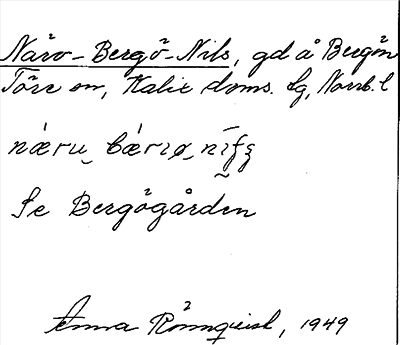 Närv-Bergö-Nils, gd å Bergön
Töre sn, Kalix doms. lg, Norrb. l
næru bærɩø nɩ
Se Bergögården
Anna Rönnqvist, 1949